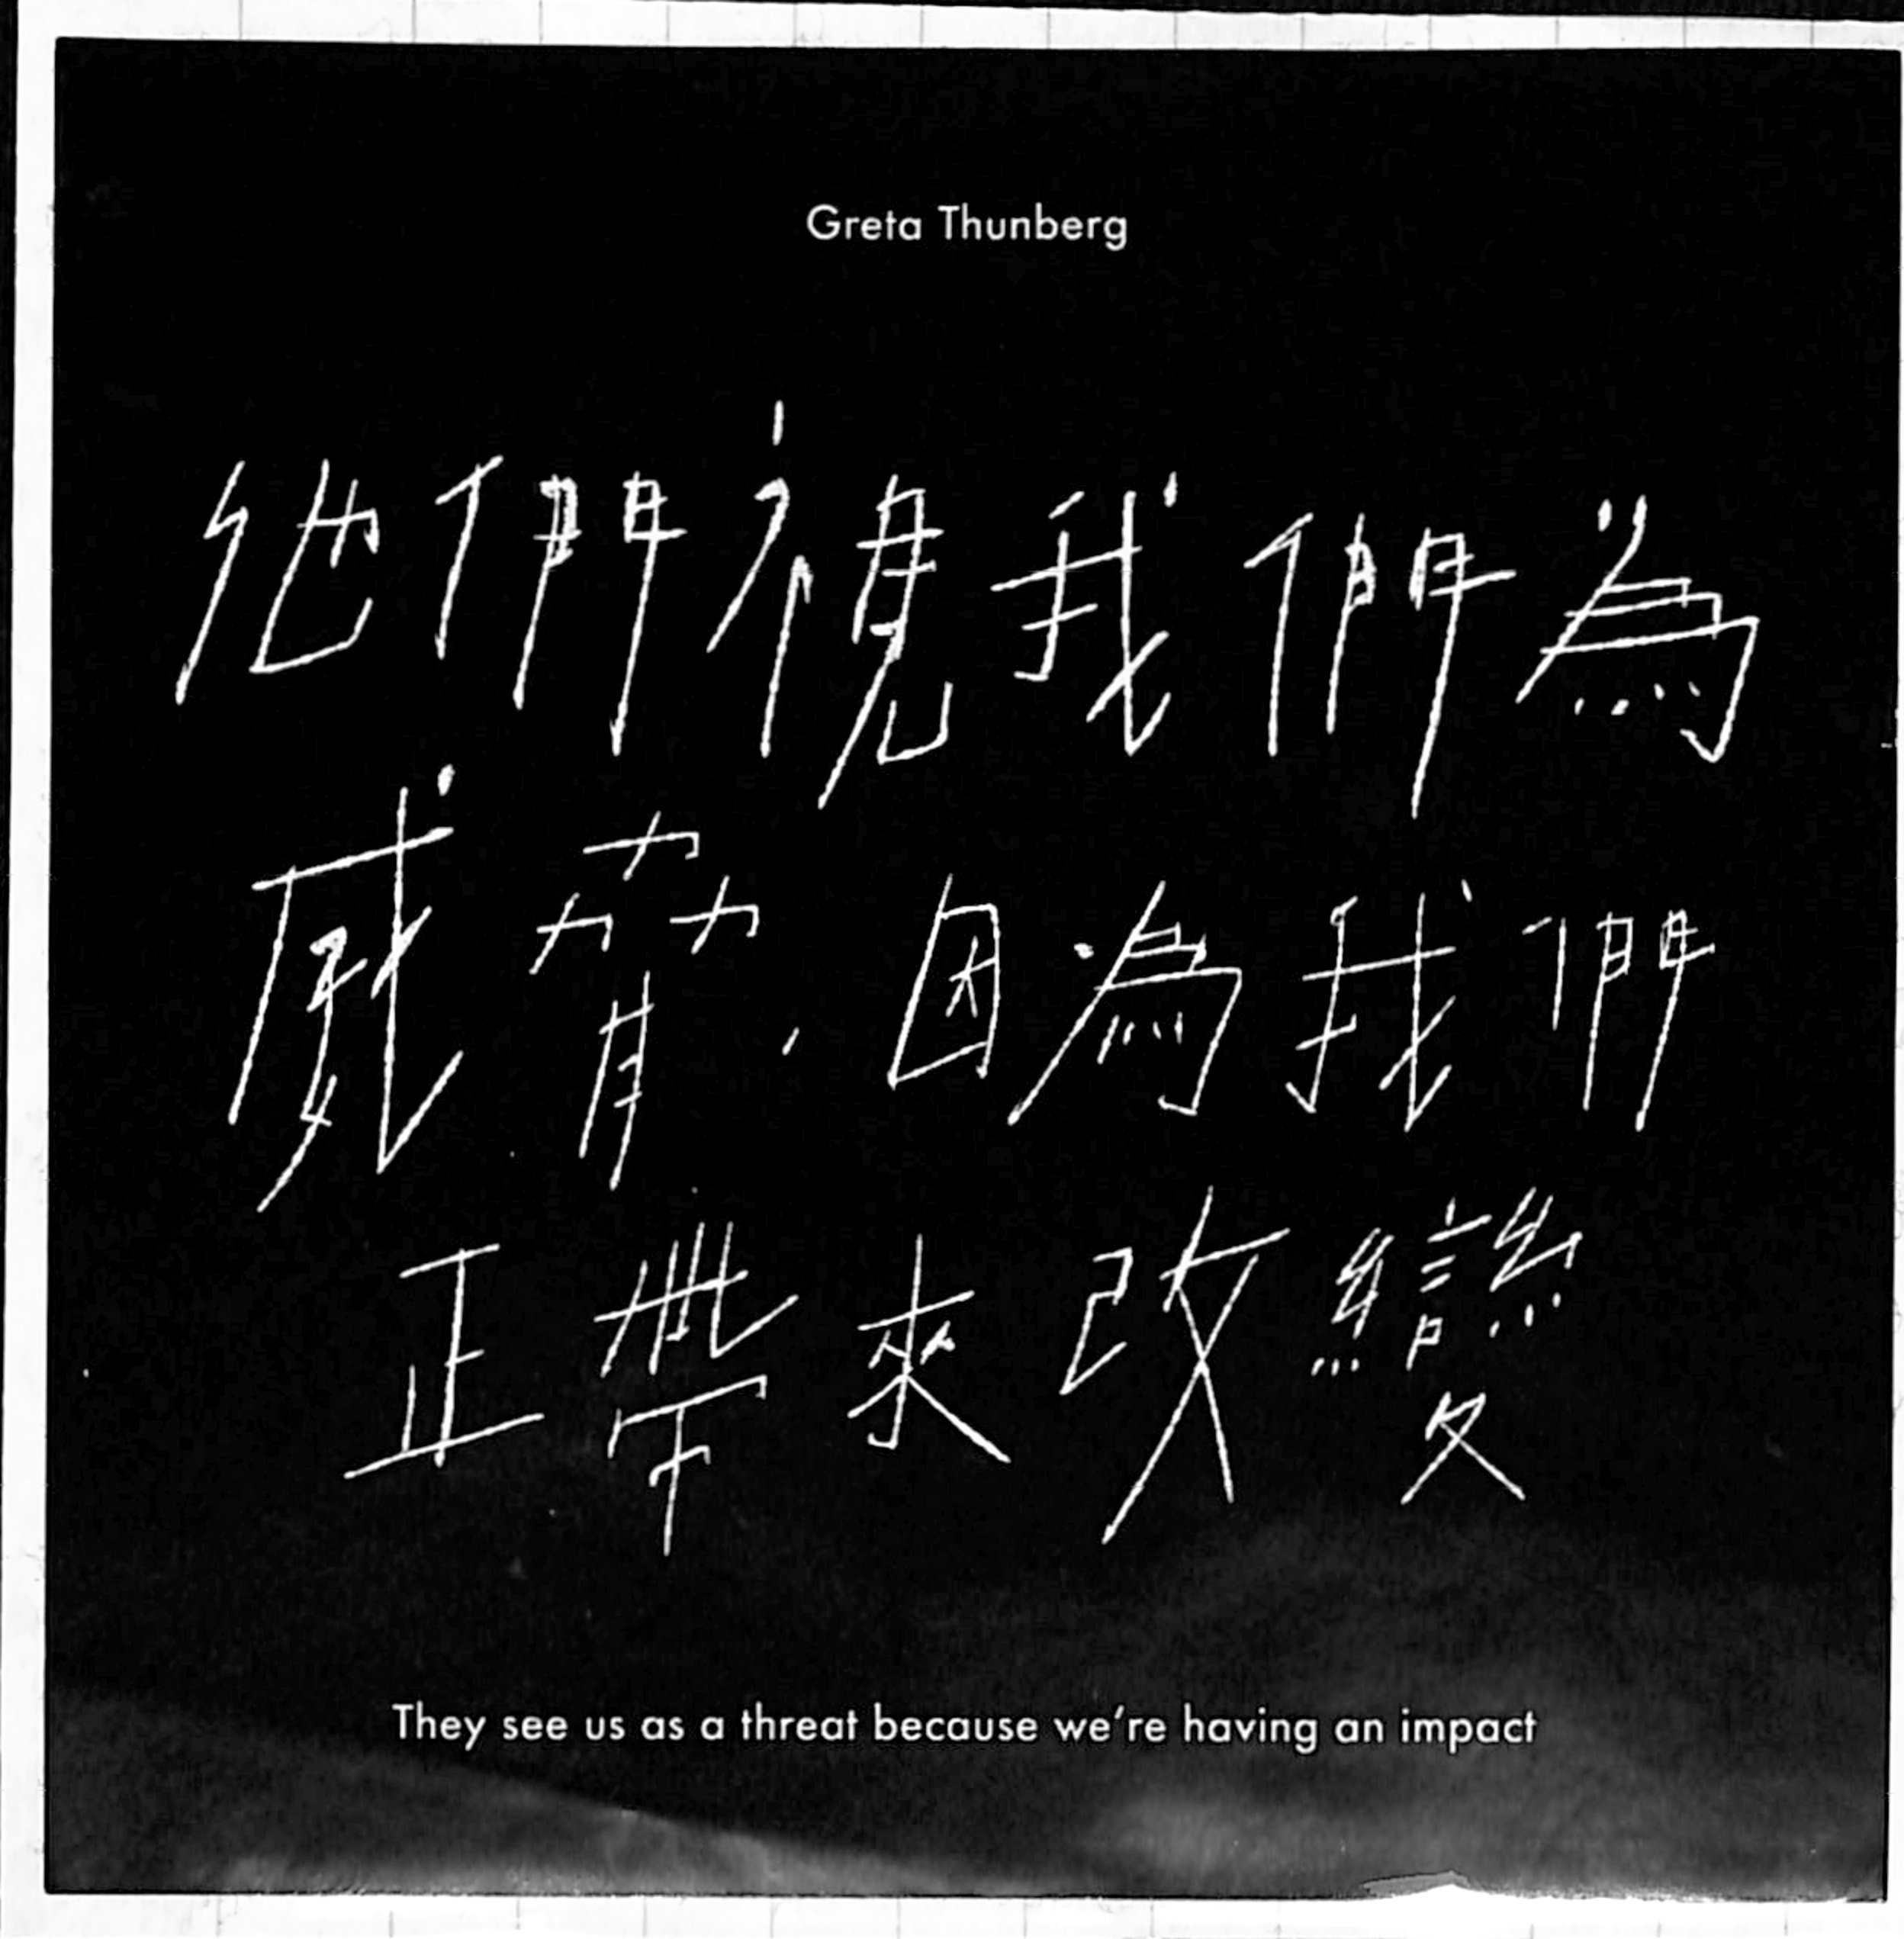 Greta Thunberg
他們視我們為
威脅，因為我們
正帶來改變
They see us as a threat because we're having an impact